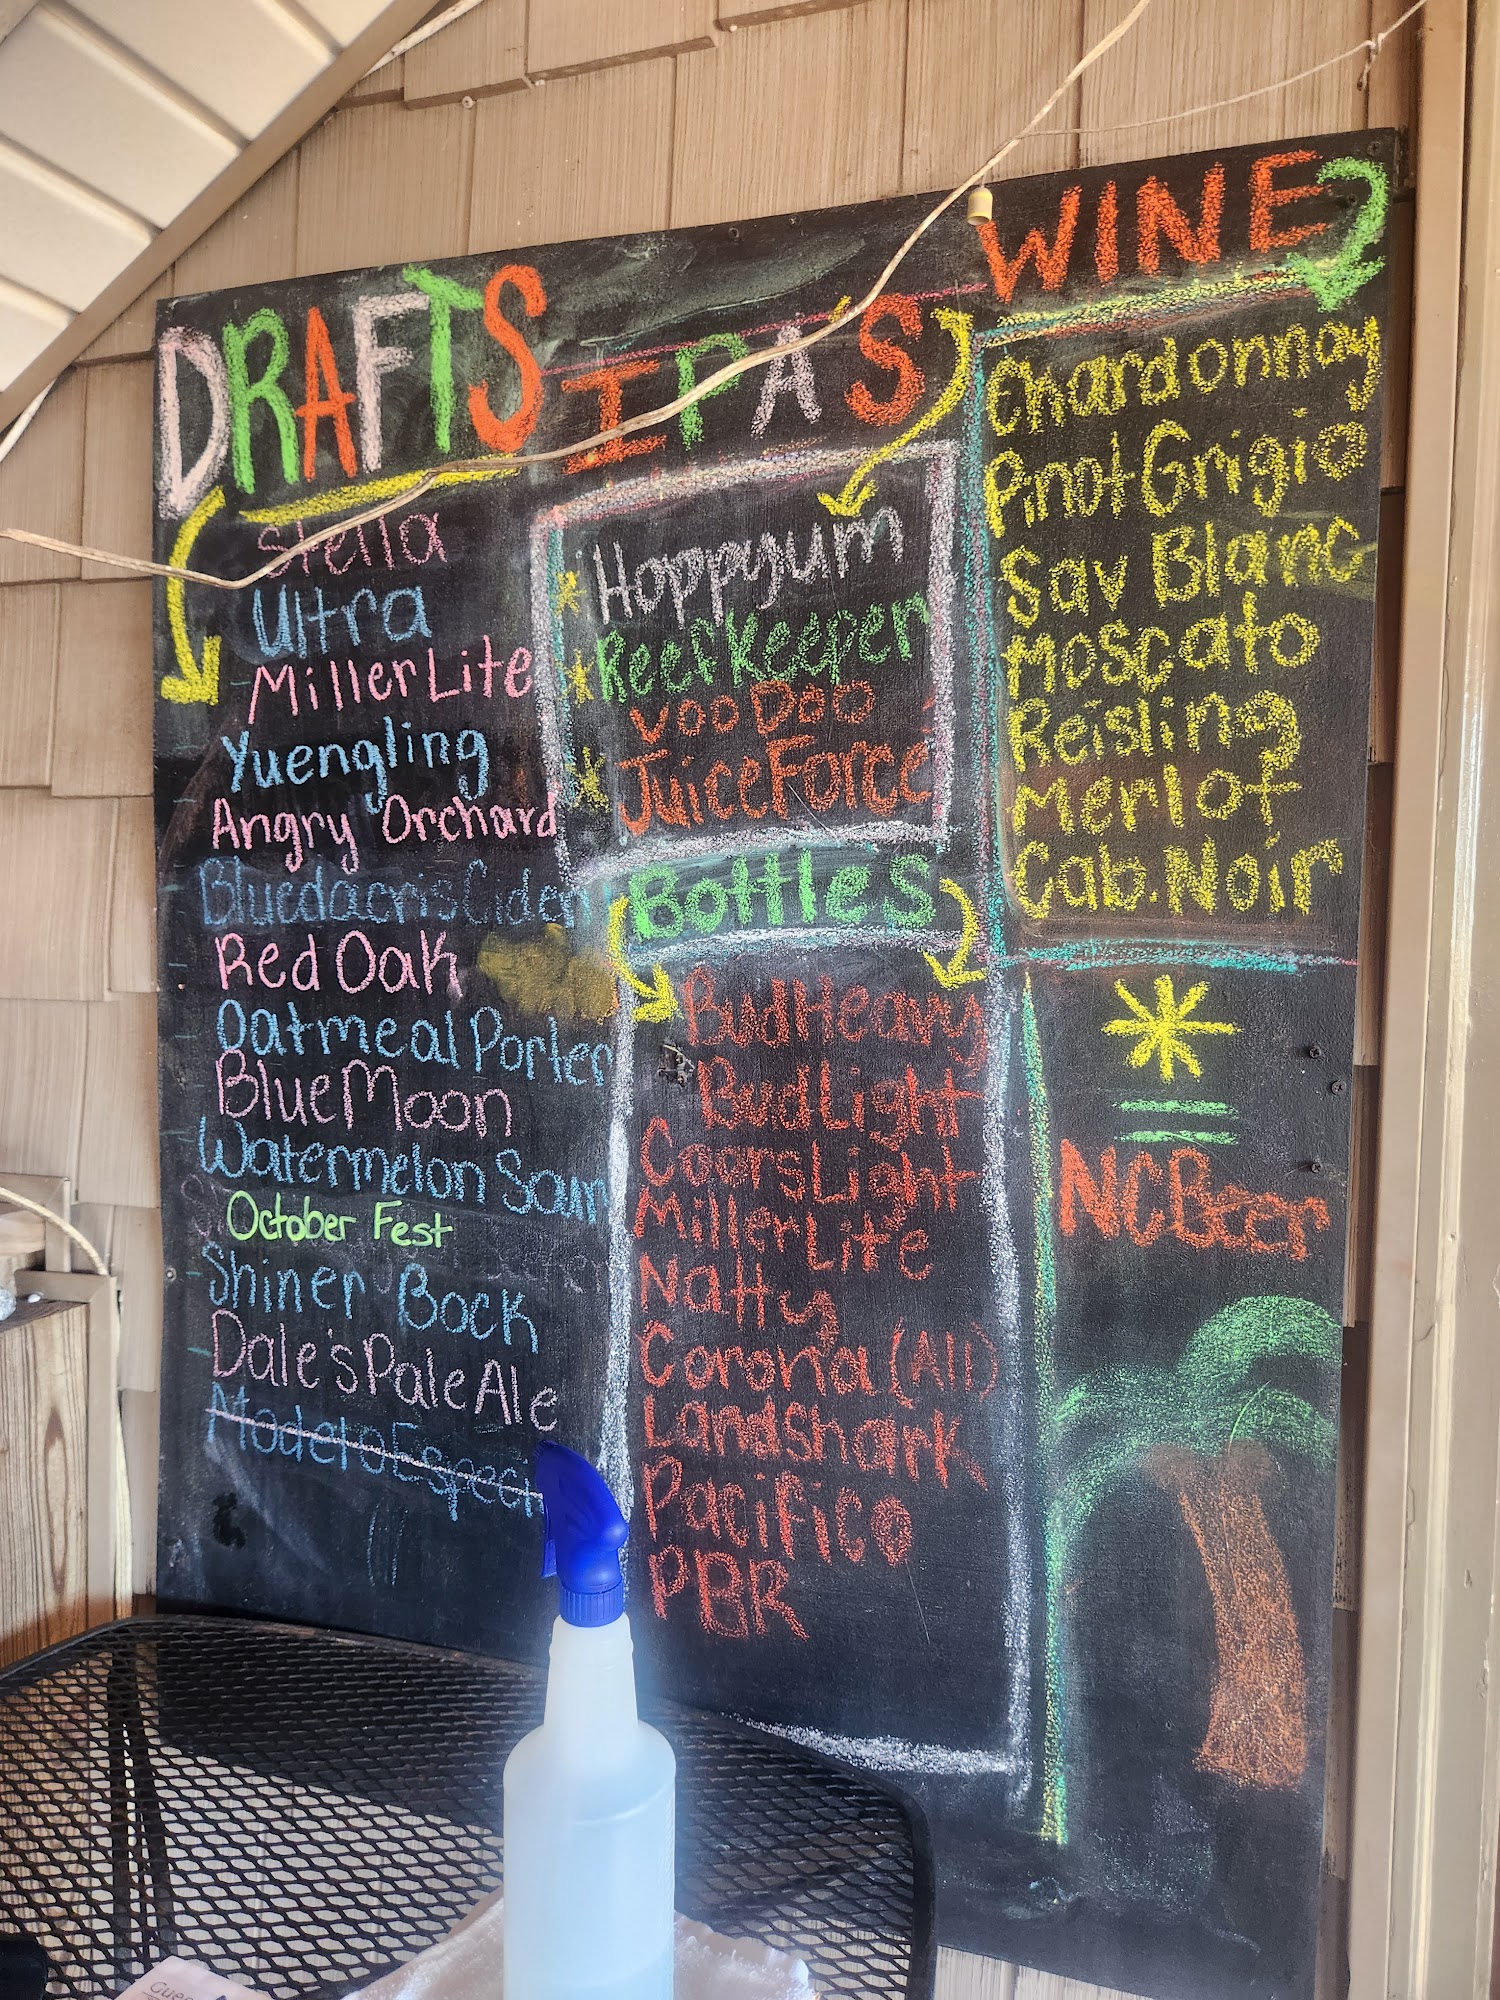 DRAFTS
Stella
Ultra
Miller Lite
Yuengling
Angry Orchard
Bluedacris Cider
Red Oak
Oatmeal Porter
Blue Moon
Watermelon Sam
October Fest
Shiner Bock
Dale's Pale Ale
Modelo Especi
IPA'S
* Hoppyum
* Reef Keeper
VooDoo
* Juice Force
Bottles
Bud Heavy
Bud Light
Coors Light
Miller Lite
Natty
Corona (All)
Landshark
Pacifico
PBR
WINE
Chardonnay
Pinot Grigio
Sav Blanc
Moscato
Reisling
Merlot
Cab. Noir
*
=
NC Beer